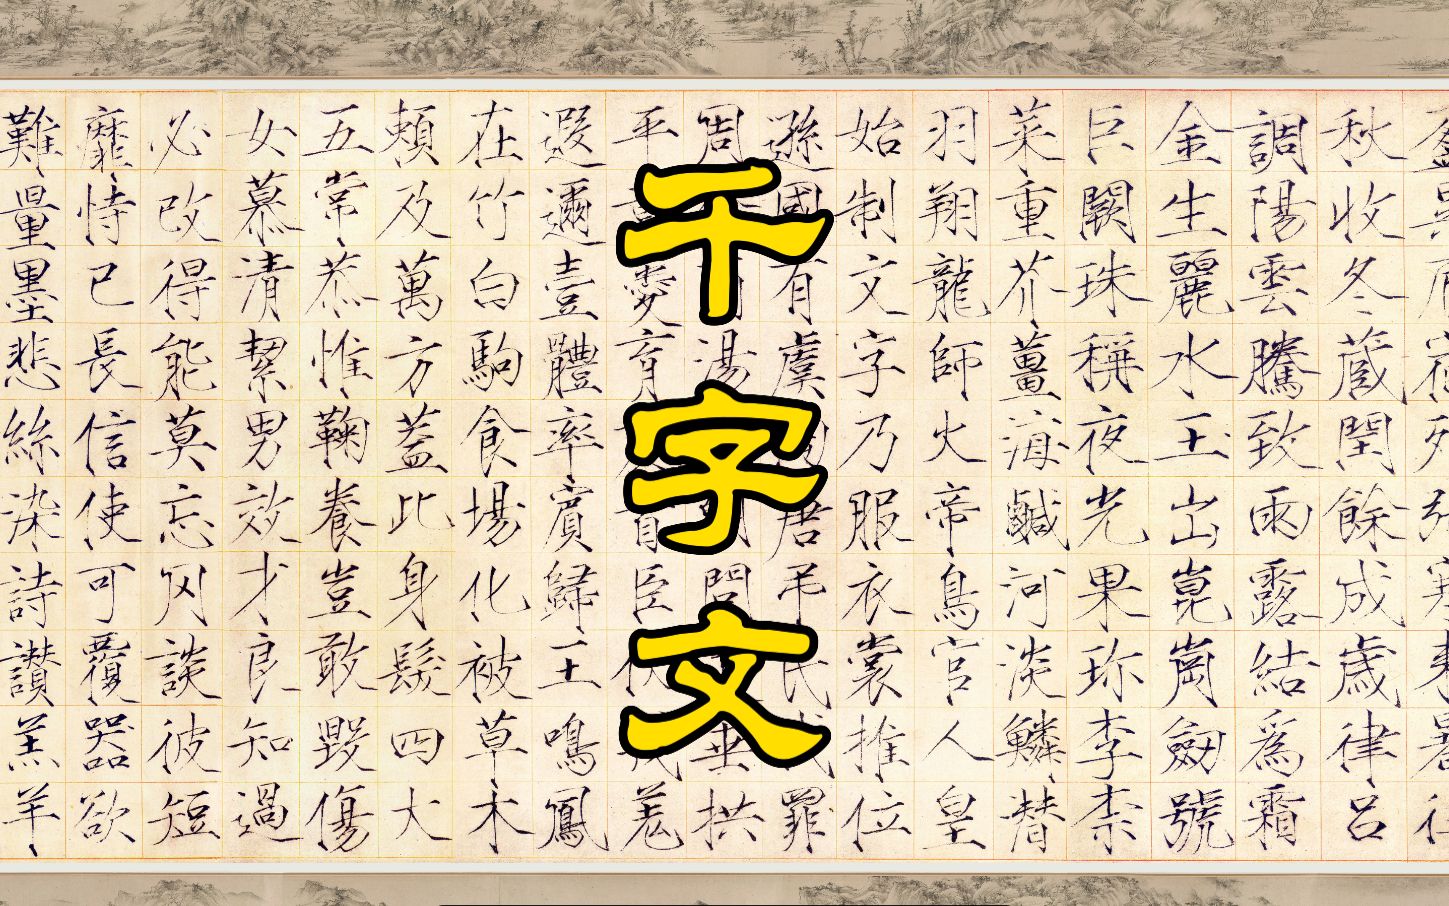 千字文
秋收冬蔵閏餘成歳律呂
調陽雲騰致雨露結爲霜
金生麗水玉出崑崗劒號
巨闕珠稱夜光果珎李柰
菜重芥薑海鹹河淡鱗潛
羽翔龍師火帝鳥官人皇
始制文字乃服衣裳推位
遜國有虞唐弔民伐罪
周湯問垂拱
平愛育首臣伏羌
遐邇壹體率賓歸王鳴鳳
在竹白駒食場化被草木
頼及萬方蓋此身髮四大
五常恭惟鞠養豈敢毀傷
女慕清絜男效才良知過
必改得能莫忘罔談彼短
靡恃己長信使可覆器欲
難量墨悲絲染詩讃羔羊